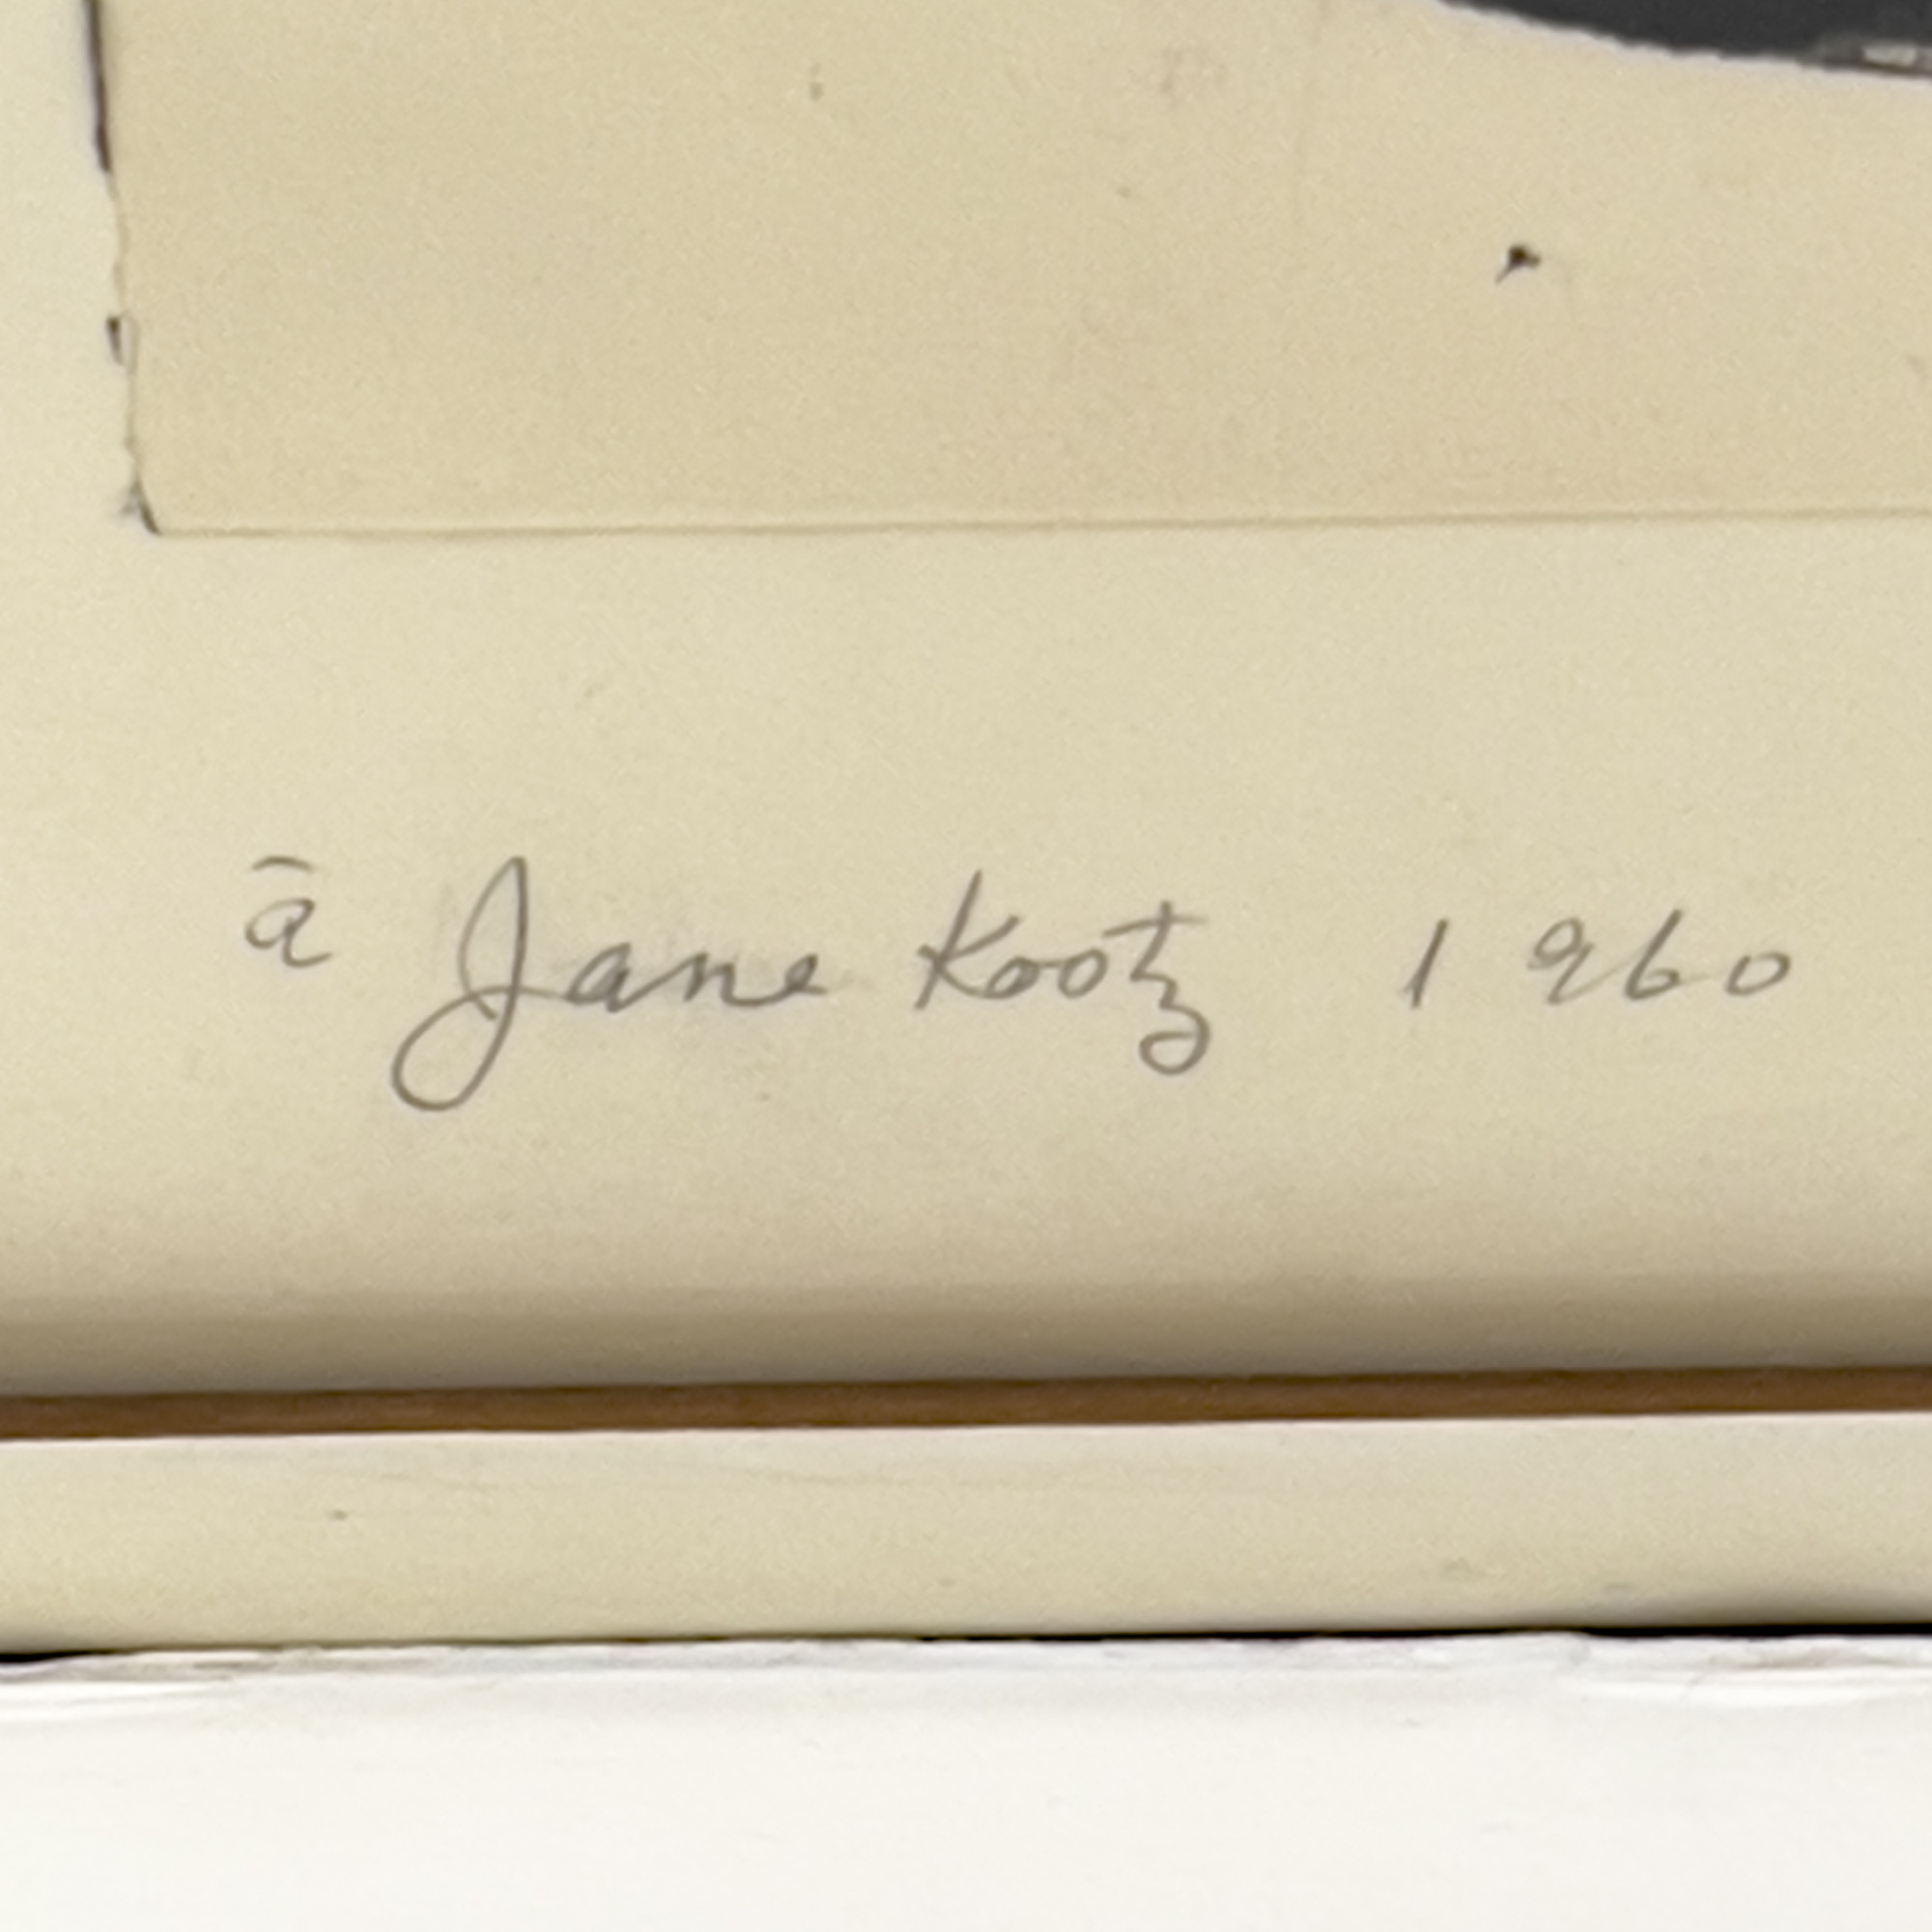 ā Jane Kootz 1960